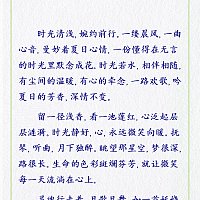 时光清浅,婉约前行,一缕晨风,一曲
心音,曼妙着夏日心情,一份懂得在无言
的时光里默念成花,时光若水,相伴相随,
有尘间的温暖,有心的牵念,一路欢歌,吟
夏日的芳香,深情不变。
留一径浅香,看一池莲红,心泛起层
层涟漪,时光静好,心,永远微笑向暖,抚
琴,听曲,月下独醉,眺望那星空,梦很深,
路很长,生命的色彩斑斓芬芳,就让微笑
每一天流淌在心上。